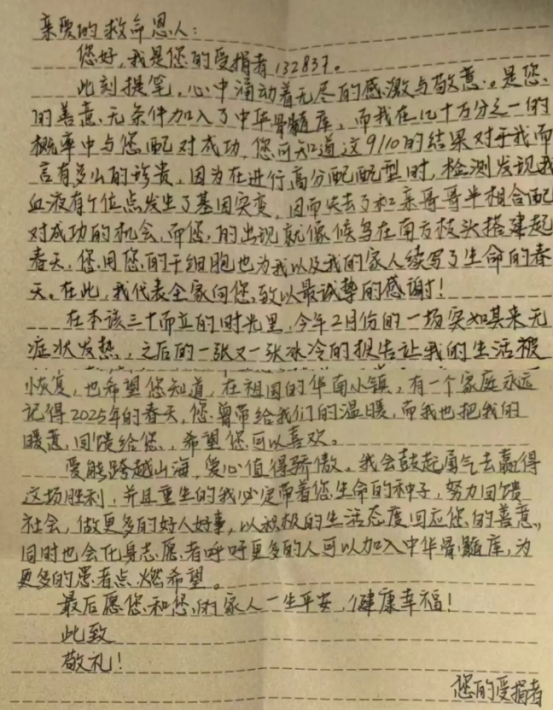 亲爱的救命恩人：
您好，我是您的受捐者132837。
此刻提笔，心中涌动着无尽的感激与敬意。是您
的善意，无条件加入了中华骨髓库，而我在几十万分之一的
概率中与您配对成功，您可知道这9/10的结果对于我而
言有多么的珍贵，因为在进行高分配配型时，检测发现我
血液有个位点发生了基因突变，因而失去了和亲哥哥半相合配
对成功的机会，而您的出现就像候鸟在南方枝头搭建起
春天，您用您的干细胞也为我以及我的家人续写了生命的春
天。在此，我代表全家向您致以最诚挚的感谢！
在本该三十而立的时光里，今年2月份的一场突如其来无
症状发热，之后的一张又一张冰冷的报告让我的生活被
恢复，也希望您知道，在祖国的华南小镇，有一个家庭永远
记得2025年的春天，您曾带给我们的温暖，而我也把我的
暖意，回馈给您，希望您可以喜欢。
爱能跨越山海，爱心值得骄傲。我会鼓起勇气去赢得
这场胜利，并且重生的我必定带着您生命的种子，努力回馈
社会，做更多的好人好事，以积极的生活态度回应您的善意。
同时也会化身志愿者呼吁更多的人可以加入中华骨髓库，为
更多的患者点燃希望。
最后愿您和您的家人一生平安，健康幸福！
此致
敬礼！
您的受捐者